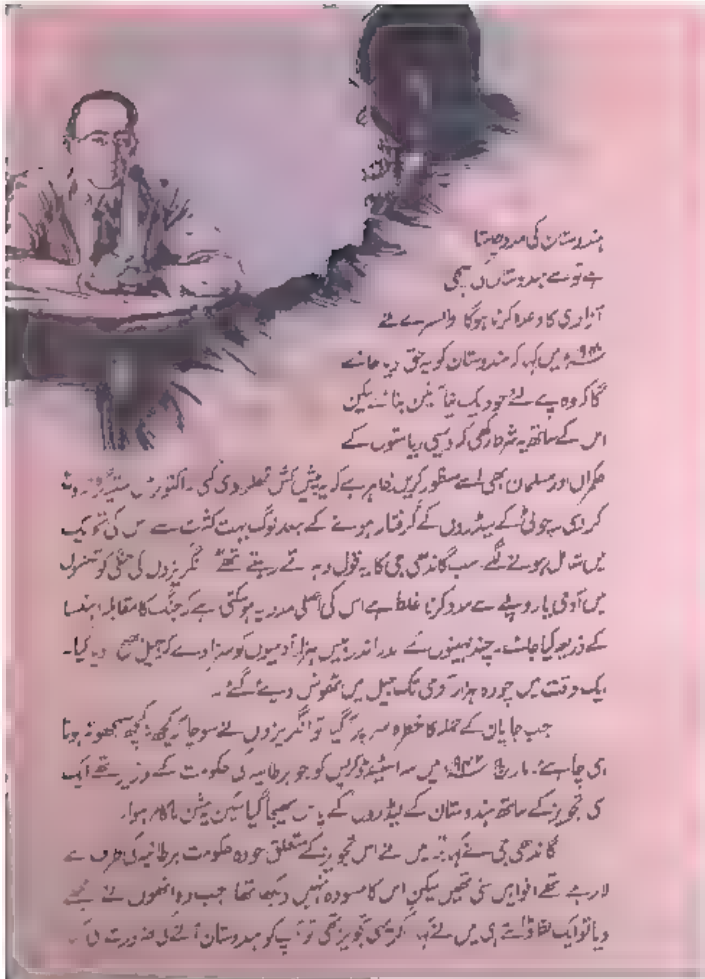 ہندوستان کی مدد چاہتا
ہے تو اسے ہندوستان کی بھی
آزادی کا وعدہ کرنا ہوگا وائسرے نے
میں کہا کہ ہندوستان کو یہ حق دیا جائے
گا کہ وہ اپنے لئے خود ایک نیا آئین بنائے لیکن
اس کے ساتھ یہ شرط رکھی کہ دیسی ریاستوں کے
حکمراں اور مسلمان بھی اسے منظور کریں ظاہر ہے کہ یہ پیش کش ٹھکرا دی گئی۔ اکتوبر میں ستیہ گرہ
کر دی۔ چوٹی کے لیڈروں کے گرفتار ہونے کے بعد لوگ بہت کثرت سے اس کی تحریک
میں شامل ہونے لگے سب گاندھی جی کا یہ قول دہراتے رہتے تھے انگریزوں کی جنگی کوششوں
میں آدمی یا روپئے سے مدد کرنا غلط ہے اس کی اصلی مدد یہ ہوسکتی ہے کہ جنگ کا مقابلہ اہنسا
کے ذریعہ کیا جائے۔ چند مہینوں کے اندر اندر بیس ہزار آدمیوں کو سزا دے کر جیل بھیج دیا گیا۔
ایک وقت میں چودہ ہزار آدمی تک جیل میں ٹھونس دیئے گئے۔
جب جاپان کے حملہ کا خطرہ سر پر آگیا تو انگریزوں نے سوچا کہ کچھ نہ کچھ سمجھوتہ ہونا
ہی چاہئے۔ مارچ ۱۹۴۲ء میں سر اسٹیفرڈ کرپس کو جو برطانیہ کی حکومت کے وزیر تھے ایک
کی تجویز کے ساتھ ہندوستان کے لیڈروں کے پاس بھیجا گیا لیکن یہ مشن ناکام ہوا۔
گاندھی جی نے کہا میں نے اس تجویز کے متعلق جو وہ حکومت برطانیہ کی طرف سے
لا رہے تھے افواہیں سنی تھیں لیکن اس کا مسودہ نہیں دیکھا تھا جب وہ انھوں نے مجھے
دیا تو ایک نظر ڈالتے ہی میں نے کہا اگر یہی تجویز تھی تو آپ کو ہندوستان آنے کی ضرورت ہی کیا